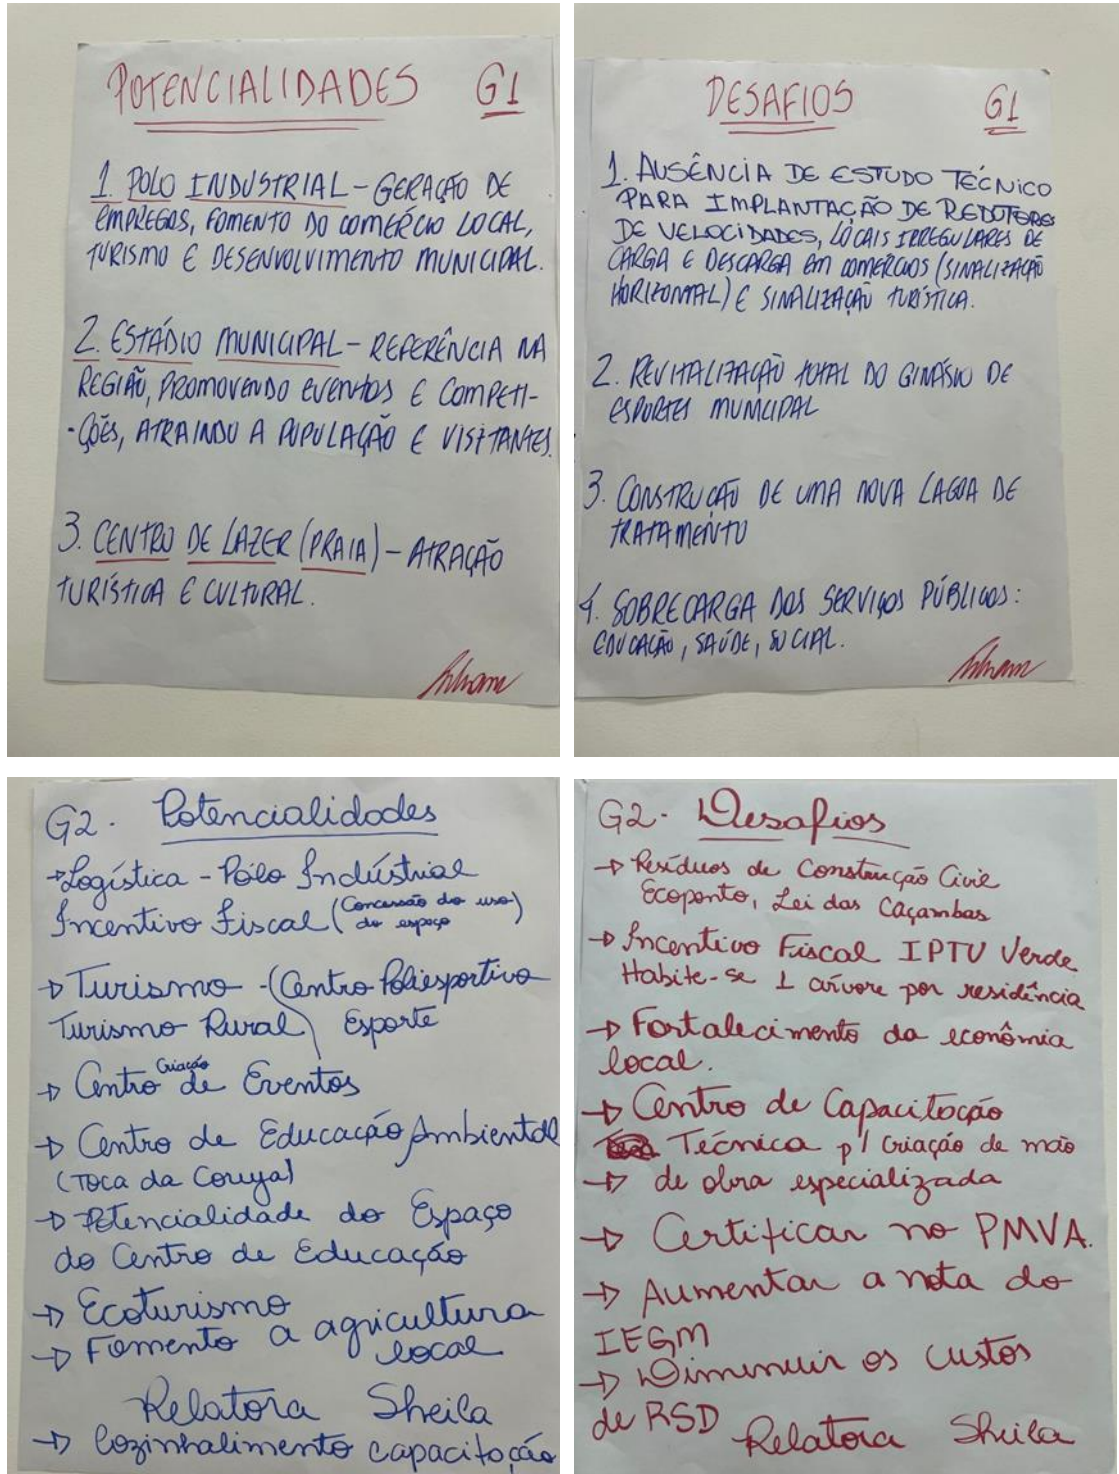 POTENCIALIDADES G1
1. POLO INDUSTRIAL – GERAÇÃO DE
EMPREGOS, FOMENTO DO COMÉRCIO LOCAL,
TURISMO E DESENVOLVIMENTO MUNICIPAL.
2. ESTÁDIO MUNICIPAL – REFERÊNCIA NA
REGIÃO, PROMOVENDO EVENTOS E COMPETI-
-ÇÕES, ATRAINDO A POPULAÇÃO E VISITANTES.
3. CENTRO DE LAZER (PRAIA) – ATRAÇÃO
TURÍSTICA E CULTURAL.
DESAFIOS G1
1. AUSÊNCIA DE ESTUDO TÉCNICO
PARA IMPLANTAÇÃO DE REDUTORES
DE VELOCIDADES, LOCAIS IRREGULARES DE
CARGA E DESCARGA EM COMERCIOS (SINALIZAÇÃO
HORIZONTAL) E SINALIZAÇÃO TURÍSTICA.
2. REVITALIZAÇÃO TOTAL DO GINÁSIO DE
ESPORTES MUNICIPAL
3. CONSTRUÇÃO DE UMA NOVA LAGOA DE
TRATAMENTO
4. SOBRECARGA DOS SERVIÇOS PÚBLICOS:
EDUCAÇÃO, SAÚDE, SOCIAL.
G2. Potencialidades
→ Logística - Pólo Indústrial
Incentivo Fiscal (Concessão do uso do espaço)
→ Turismo - (Centro Poliesportivo
Turismo Rural) Esporte
→ Centro Criação de Eventos
→ Centro de Educação Ambiental
(Toca da Coruja)
→ Potencialidade do Espaço
do Centro de Educação
→ Ecoturismo
→ Fomento a agricultura
local
Relatora Sheila
→ Cozinhalimento capacitação
G2. Desafios
→ Resíduos de Construção Civil
Ecoponto, Lei das Caçambas
→ Incentivo Fiscal IPTU Verde
Habite-se 1 árvore por residência
→ Fortalecimento da econômia
local.
→ Centro de Capacitação
Técnica p/ criação de mão
→ de obra especializada
→ Certificar no PMVA.
→ Aumentar a nota do
IEGM
→ Diminuir os custos
de RSD
Relatora Sheila